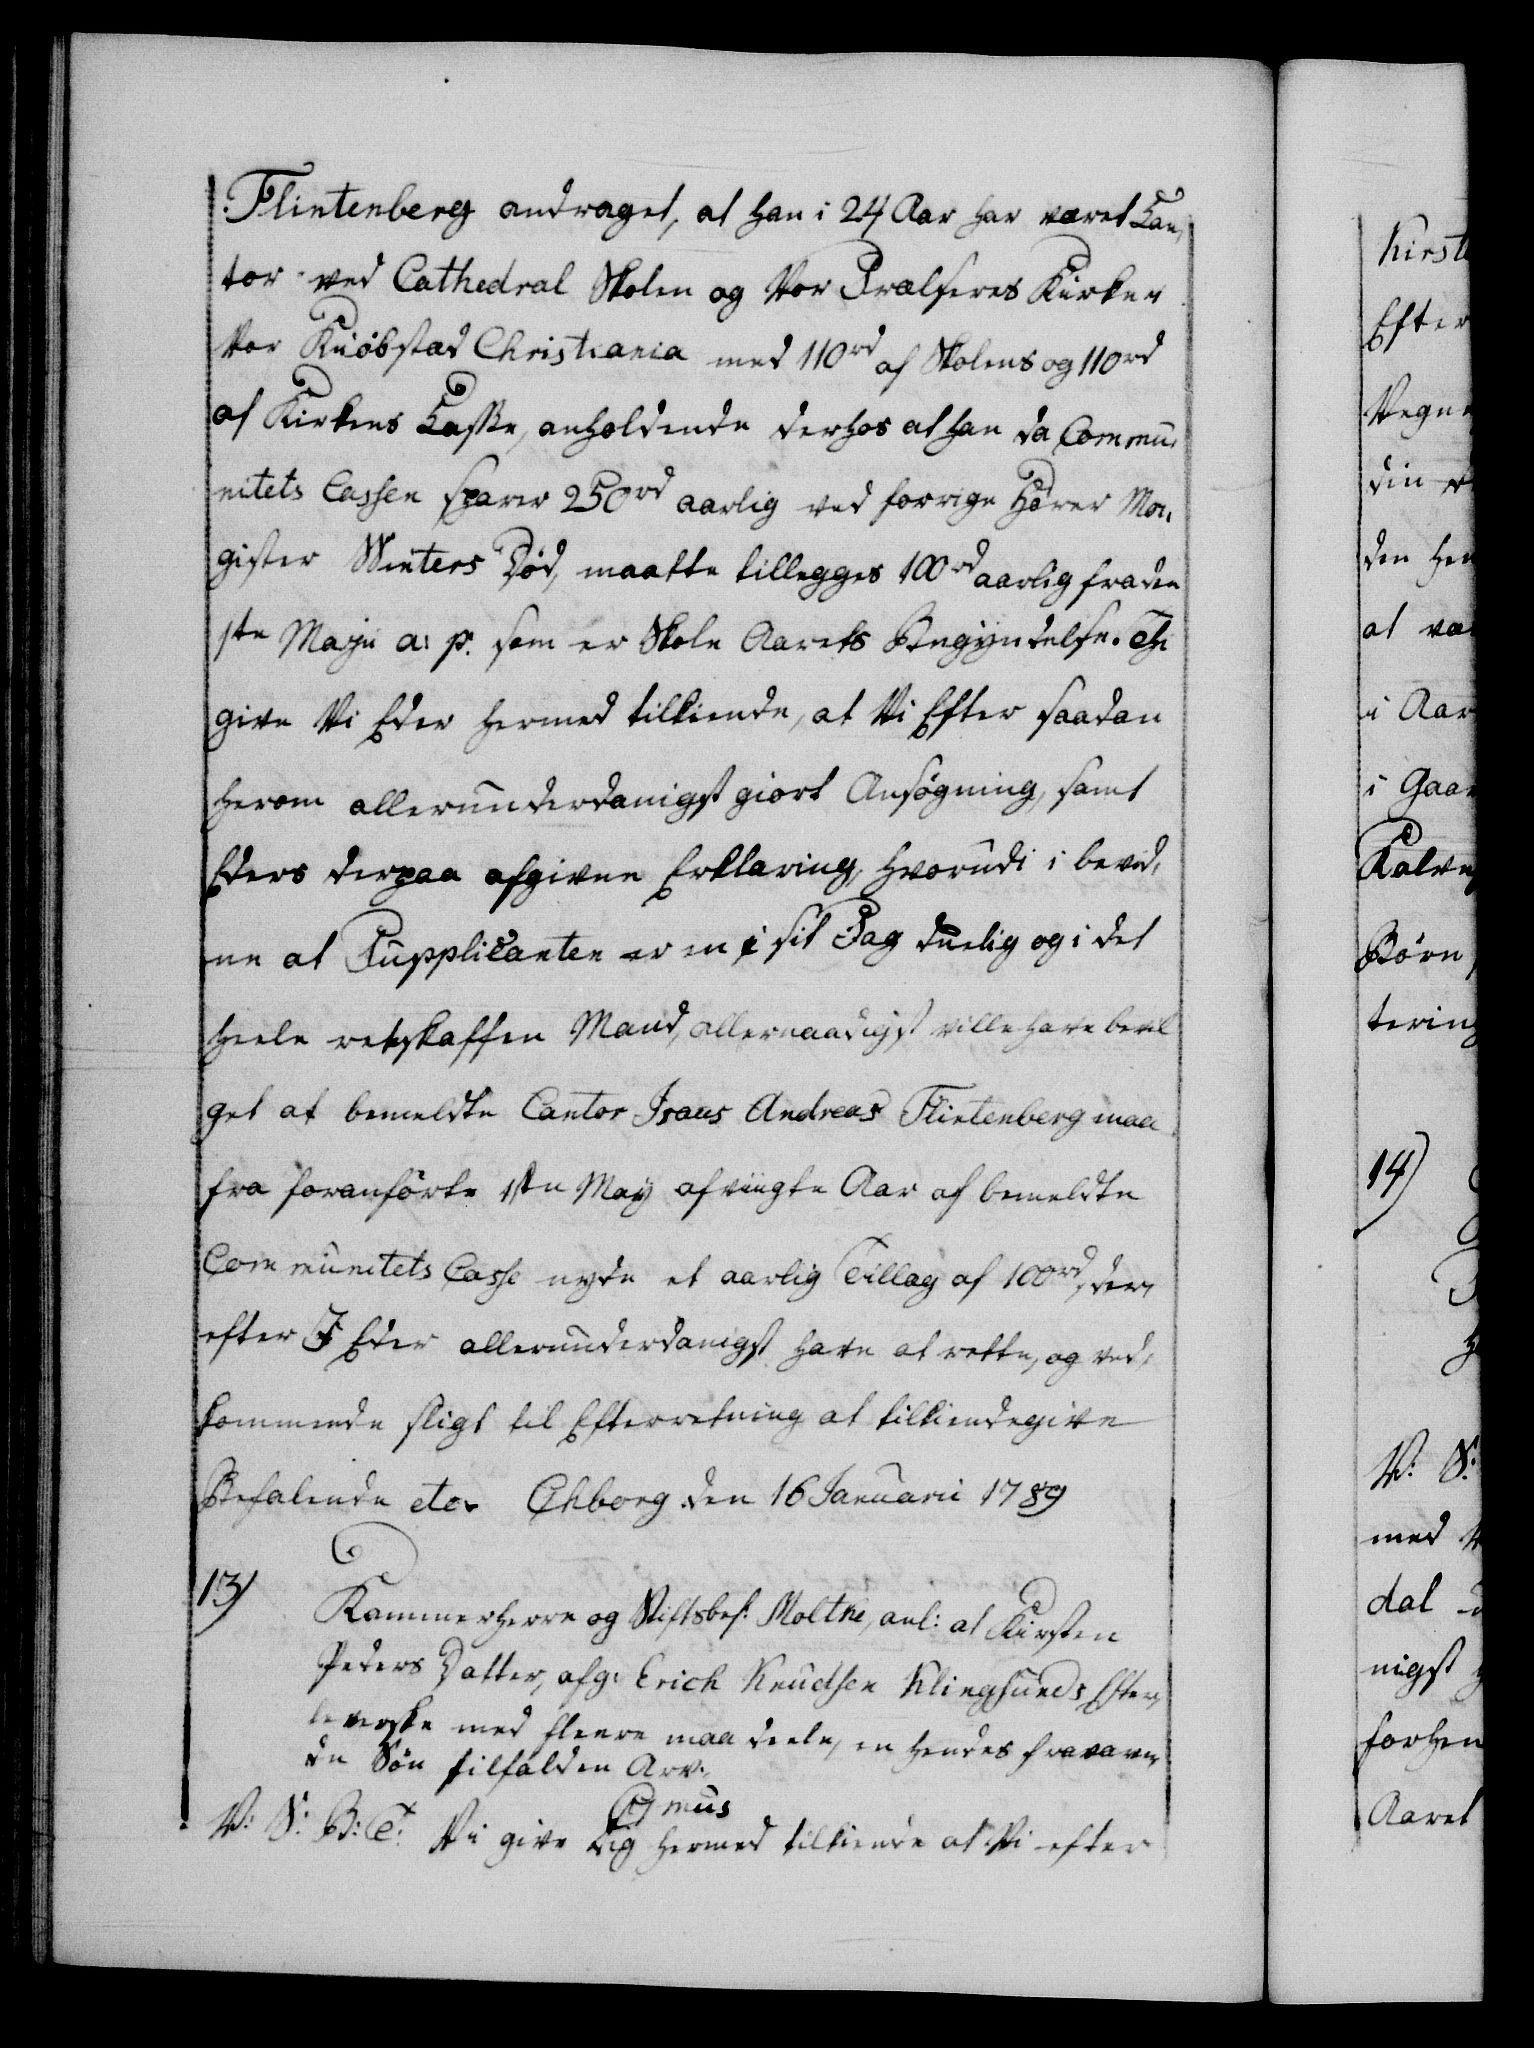 Flintenberg andraget, at han i 24 Aar har været Can,
tor ved Cathedral Skolen og Vor Frælseres Kirke i
Vor Kiøbstad Christiania med 110rd af Skolens og 110rd
af Kirkens Casse, anholdende derhos at han da Commu,
nitets Cassen sparer 250rd aarlig ved forrige Hører Ma,
gister Winters Død, maatte tillegges 100rd aarlig fra den
1ste Maji a: p. som er Skole Aarets Begyndelse. Thi
give Vi Eder hermed tilkiende, at Vi Efter saadan
herom allerunderdanigst giort Ansøgning, samt
Eders derpaa afgivne Erklæring, hvorudi i bevid,
ne at Supplicanten er en i sit Fag duelig og i det
heele retskaffen Mand, allernaadigst ville have bevil
get at bemeldte Cantor Isaus Andreas Flintenberg maa
fra foranførte 1ste May afvigte Aar af bemeldte
Communitets Casse nyde et aarlig Tillæg af 100rd, der,
efter I Eder allerunderdanigst have at rette, og ved,
kommende sligt til Efterretning at tilkiendegive
Befalende etc. Chborg den 16 Januarii 1789
13) Kammerherre og Stiftsbef: Molthe, anl: at Kirsten
Peders Datter, afg: Erich Knudsen Klingsunds Efter,
leverske med fleere maa deele, en hendes fraværen,
de Søn tilfalden Arv.
C7mus
V: S: B: T: Vi give Dig hermed tilkiende at Vi efter
Kirst
Efter
Vegne
din
den
at
i Aar
i Gaar
Børn
tering
14)
V: S:
med
dal
nigst
forhen
Aaret